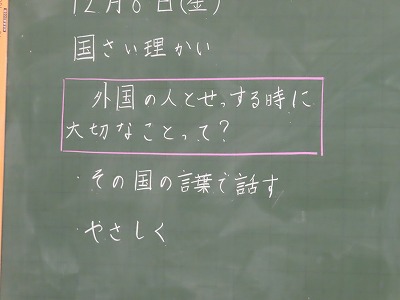 12月6日(金)
国さい理かい
外国の人とせっする時に
大切なことって？
・その国の言葉で話す
・やさしく